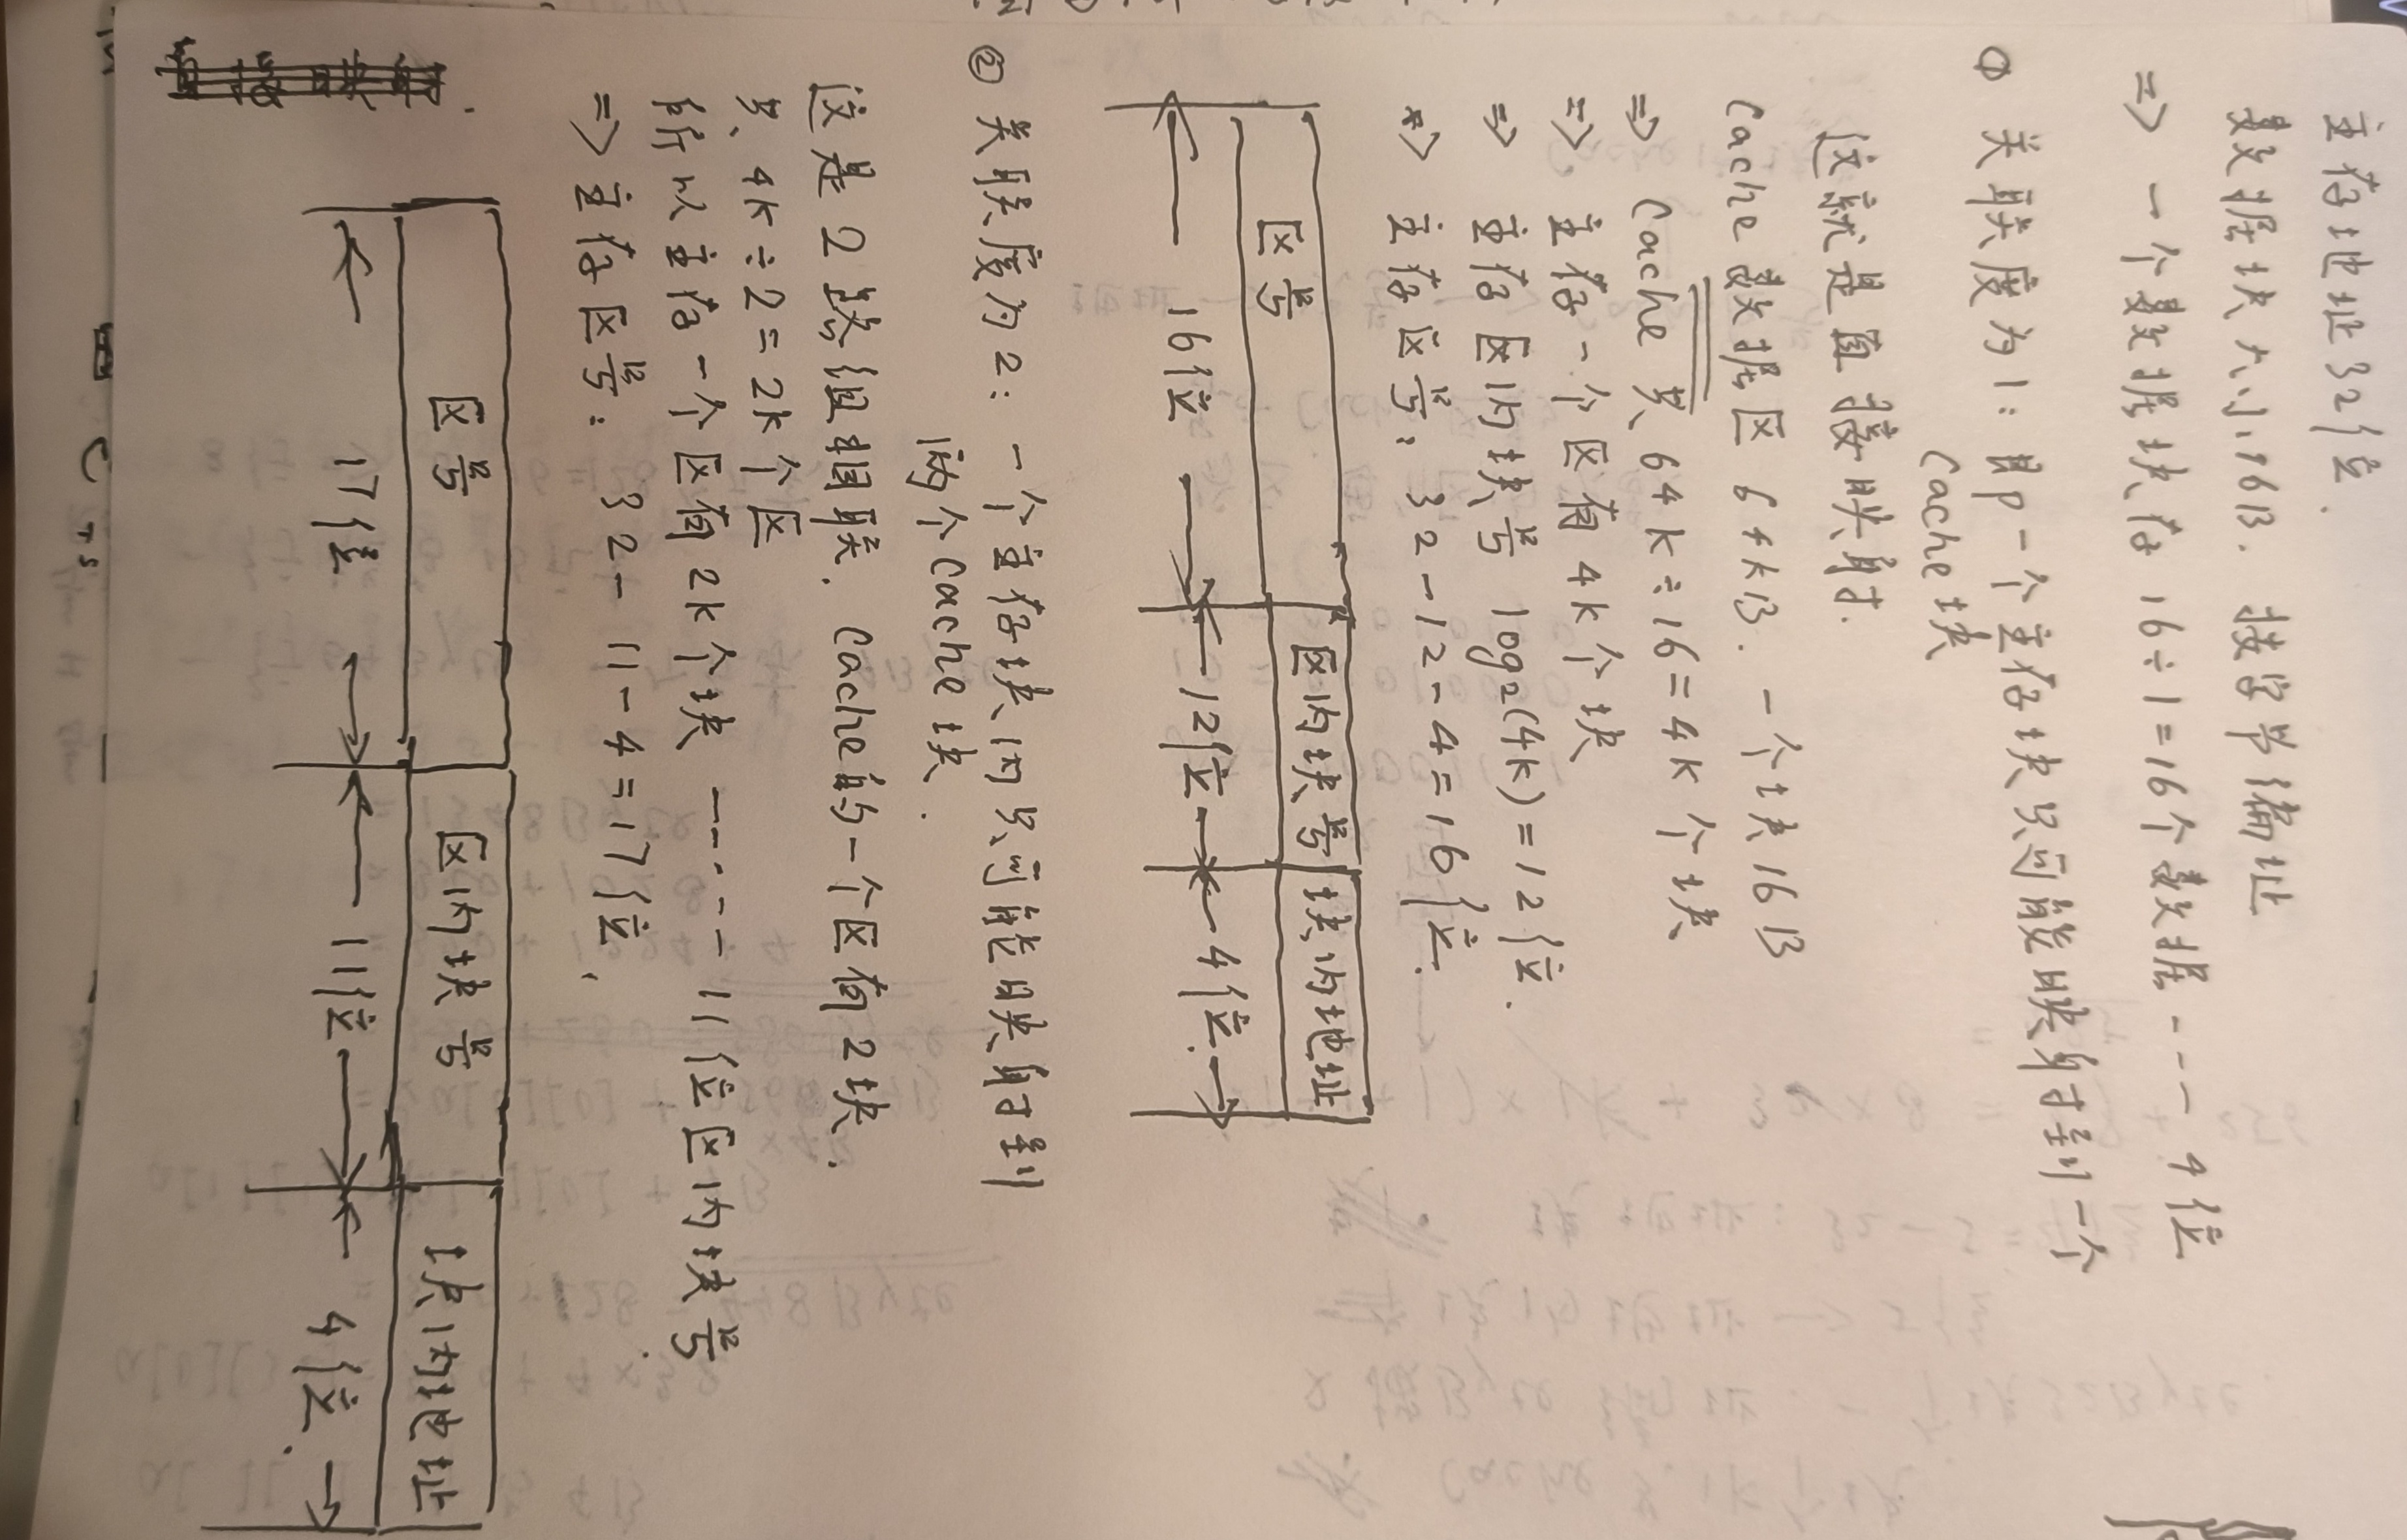 主存地址32位.
数据块大小16B. 按字节编址
=> 一个数据块存 16÷1=16个数据 ---- 4位
① 关联度为1: 即一个主存块只可能映射到一个
Cache块
这就是直接映射.
Cache 数据区 64KB. 一个块16B
=> Cache 共 64K÷16=4K个块
=> 主存一个区有4K个块
=> 主存区内块号 log₂(4K)=12位.
=> 主存区号: 32-12-4=16位.
区号 区内块号 块内地址
16位 12位 4位.
② 关联度为2: 一个主存块内只可能映射到
两个Cache块.
这是2路组相联. Cache的一个区有2块.
共 4K÷2=2K个区
所以主存一个区有2K个块 ------ 11位区内块号.
=> 主存区号: 32-11-4=17位.
区号 区内块号 块内地址
17位 11位 4位.